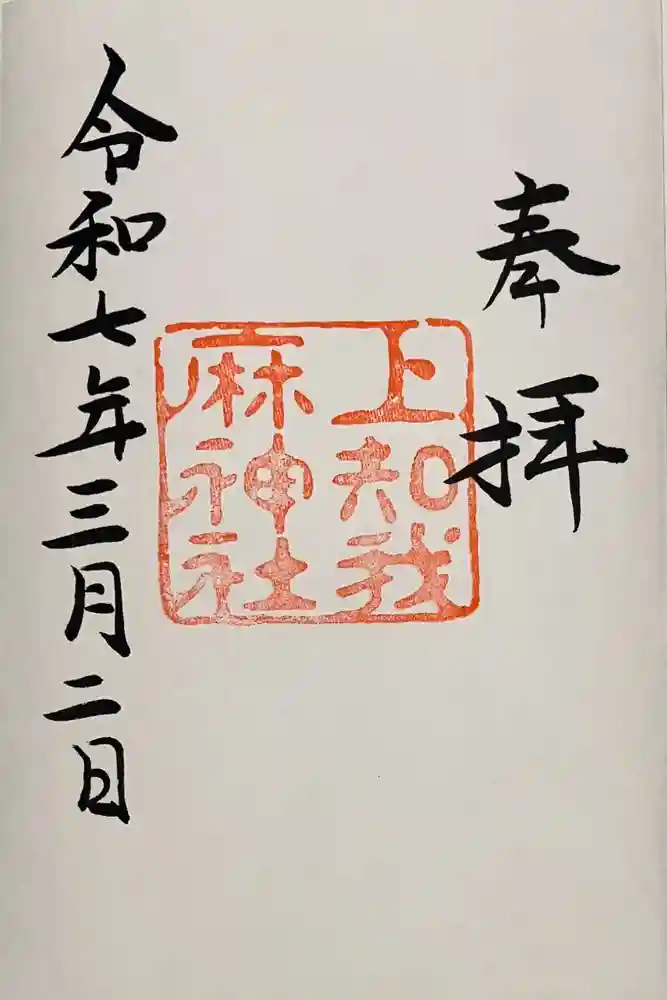 奉拝
上知我
麻神社
令和七年三月二日